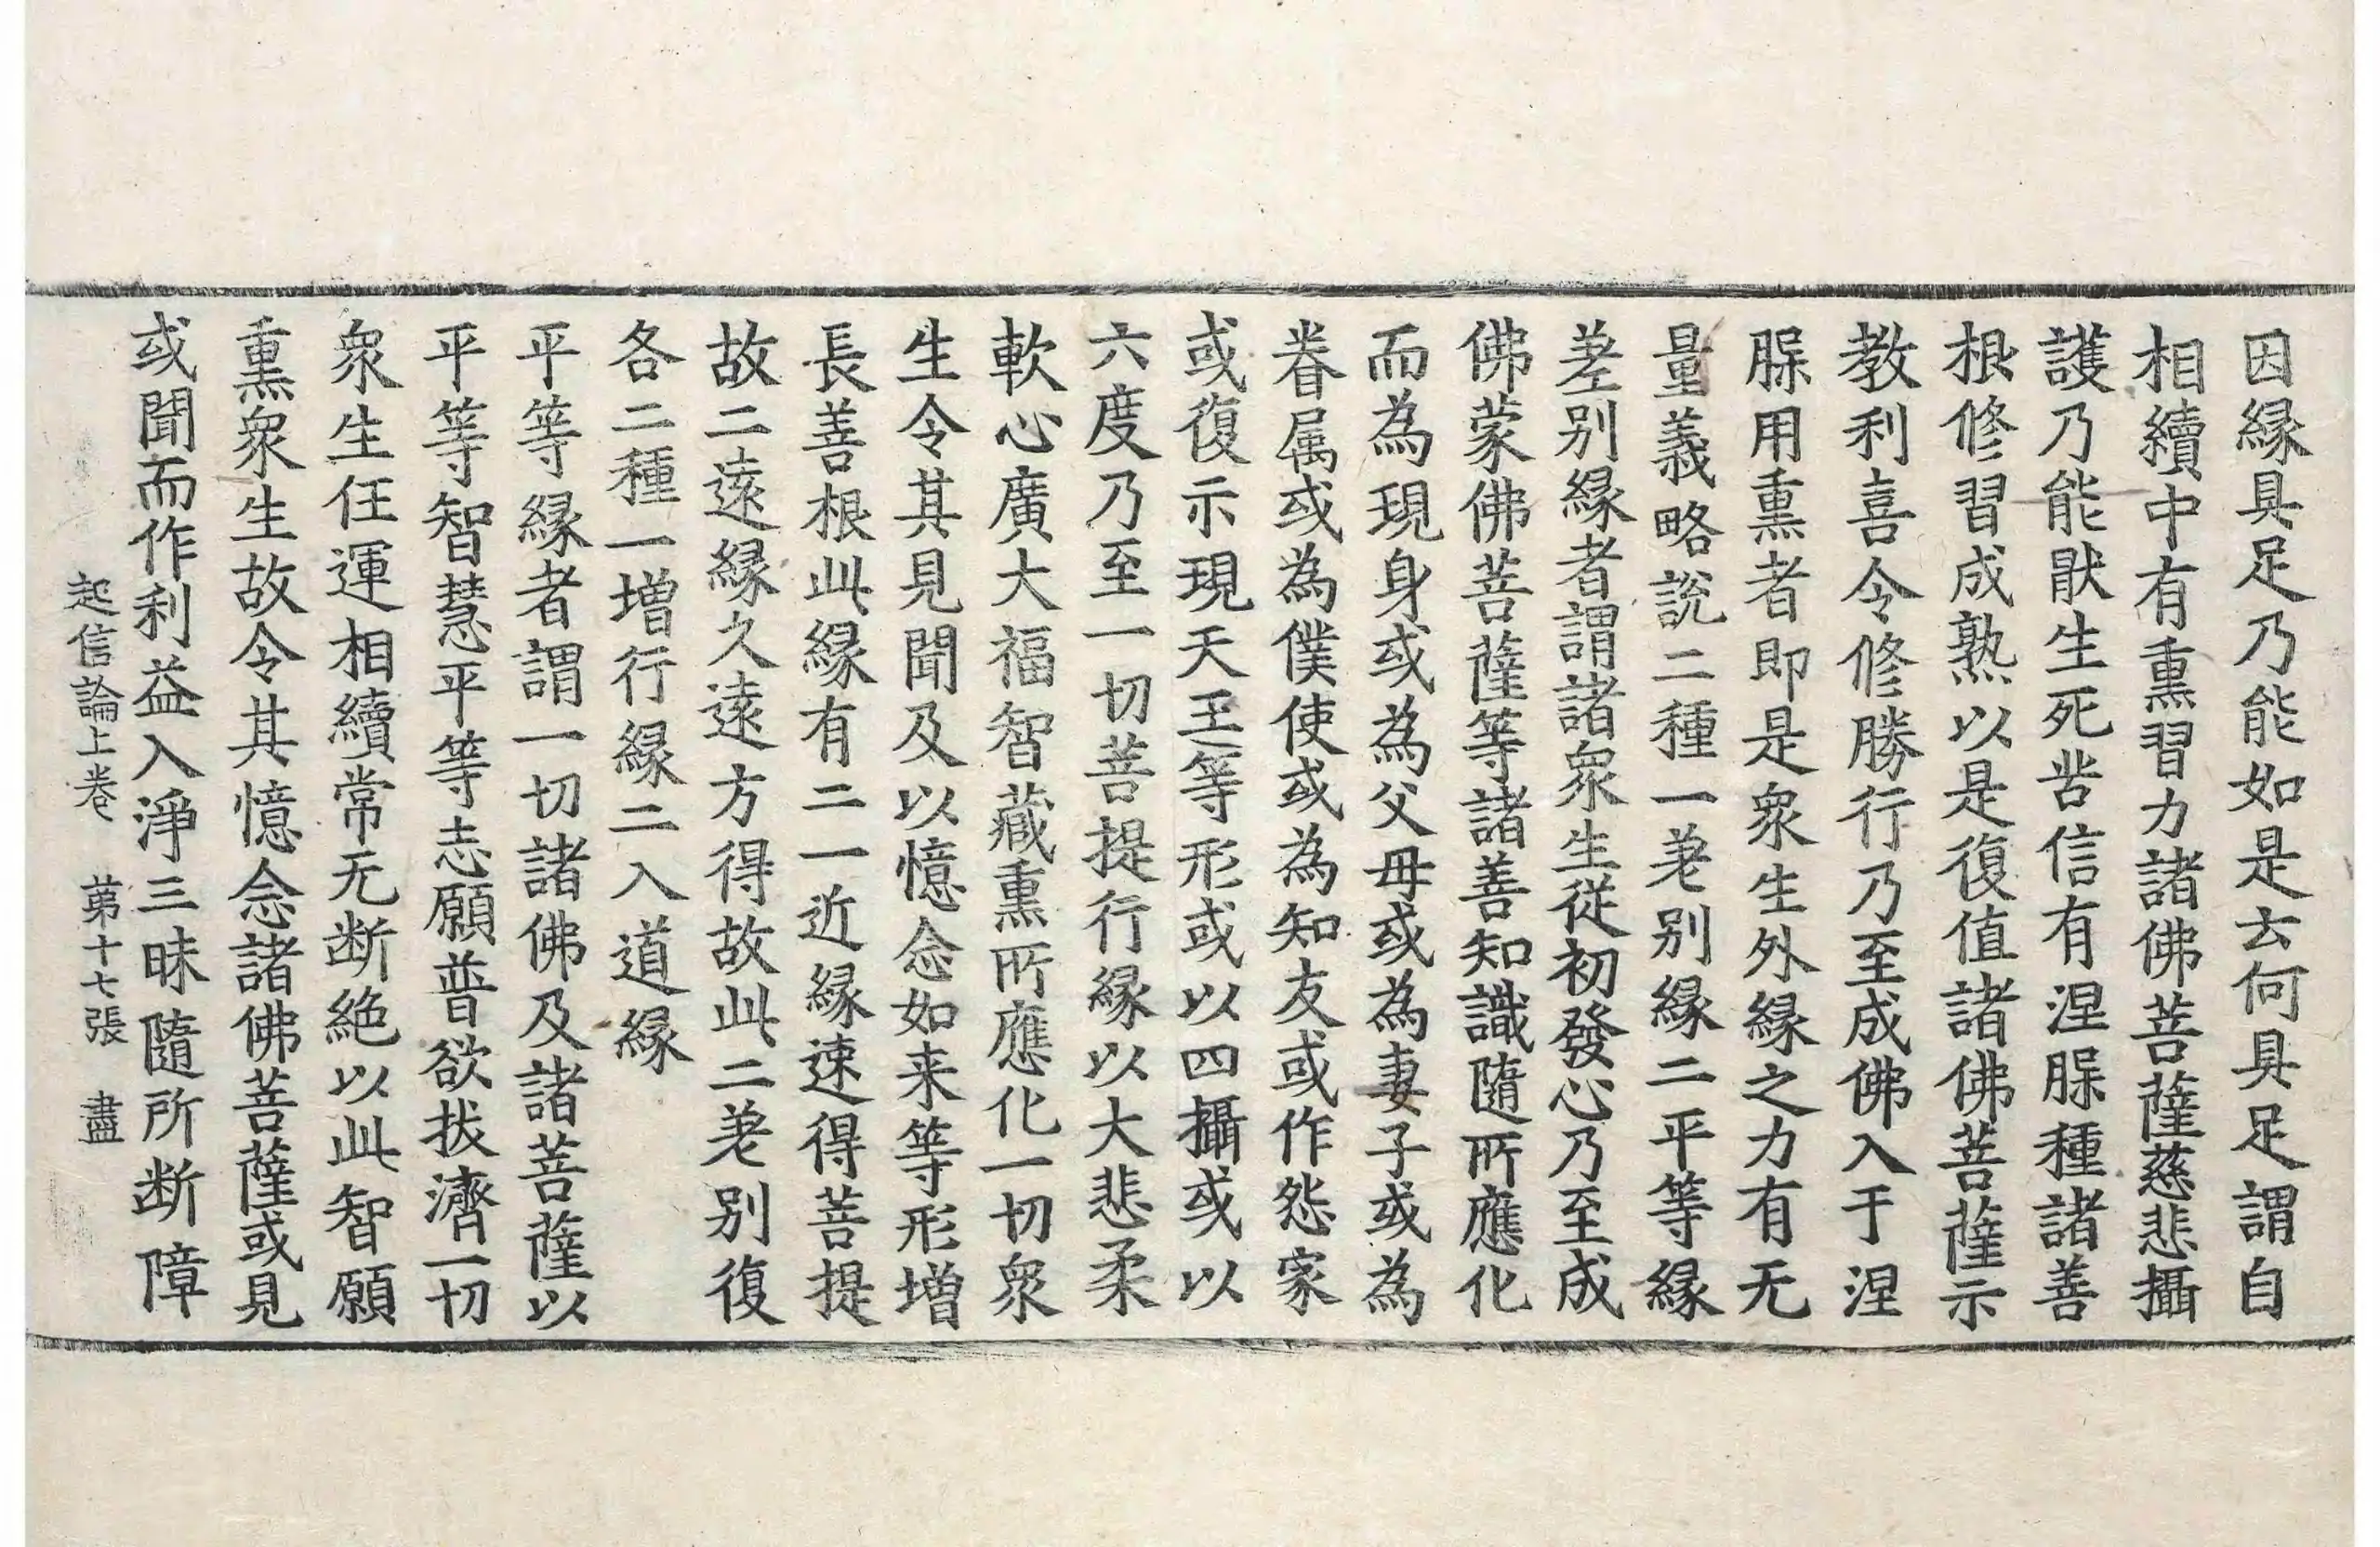 因縁具足乃能如是去何具足謂自
相續中有熏習力諸佛菩薩慈悲攝
護乃能猒生死苦信有涅槃種諸善
根修習成熟以是復值諸佛菩薩示
教利喜令修勝行乃至成佛入于涅
槃用熏者即是衆生外縁之力有无
量義略說二種一差別縁二平等縁
差別縁者謂諸衆生從初發心乃至成
佛蒙佛菩薩等諸善知識隨所應化
而為現身或為父母或為妻子或為
眷属或為僕使或為知友或作怨家
或復示現天王等形或以四攝或以
六度乃至一切菩提行縁以大悲柔
軟心廣大福智藏熏所應化一切衆
生令其見聞及以憶念如来等形増
長善根此縁有二一近縁速得菩提
故二遠縁久遠方得故此二差別復
各二種一増行縁二入道縁
平等縁者謂一切諸佛及諸菩薩以
平等智慧平等志願普欲拔濟一切
衆生任運相續常无断絶以此智願
熏衆生故令其憶念諸佛菩薩或見
或聞而作利益入淨三昧隨所断障
起信論上卷 苐十七張 盡